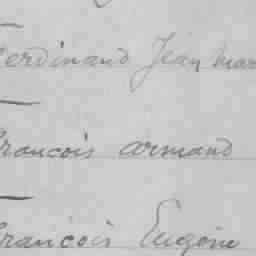 Ferdinand Jean Mar
Francois Armand
François Eugène